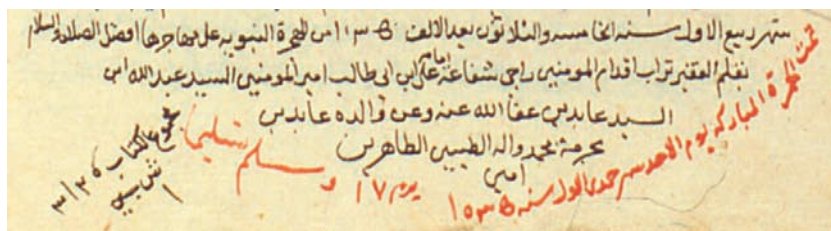 شهر ربيع الاول سنه الخامسه والثلاثون بعد الالف ١٠٣٥ من الهجرة النبويه على مهاجرها افضل الصلاة والسلام
بقلم الفقير تراب اقدام المومنين راجى شفاعة امامى على ابن ابى طالب امير المومنين السيد عبد الله ابن
السيد عابدين عفا الله عنه وعن والده عابدين
بحرمة محمد واله الطيبين الطاهرين
امين
تمت المباركه يوم الاحد شهر جمدى الاول سنه ١٠٣٥
يوم ١٧ وسلم تسليما
الكتاب